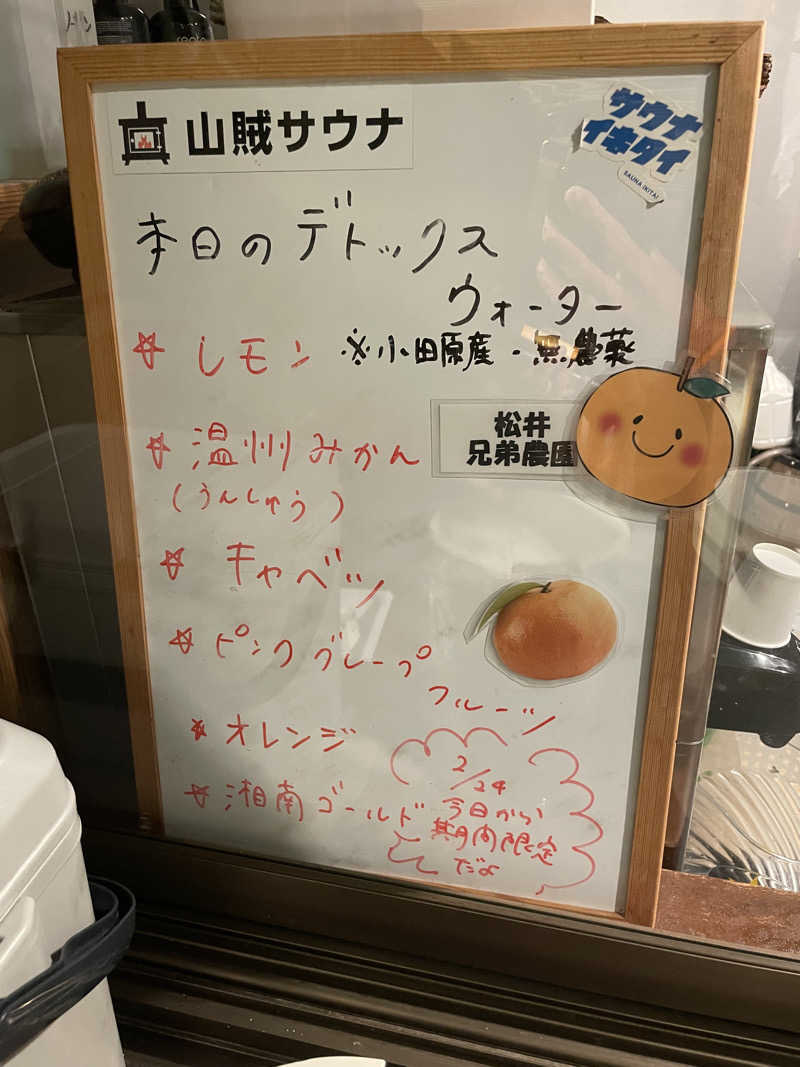 山賊サウナ
サウナ
イキタイ
SAUNA IKITAI
本日のデトックス
ウォーター
☆レモン ※小田原産・無農薬
☆温州みかん
(うんしゅう)
松井
兄弟農園
☆キャベツ
☆ピンクグレープ
フルーツ
☆オレンジ
☆湘南ゴールド
2/24
今日から
期間限定
だよ